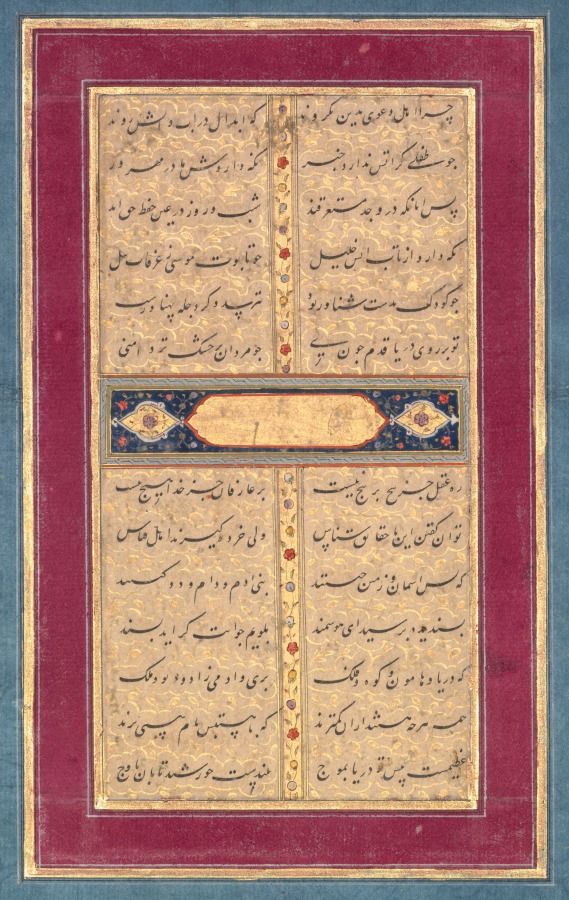 چرا اهل دعوی بدین نگروند که ابدال در آب و آتش روند
چو طفلی کز آتش ندارد خبر نگه داردش مادر مهرور
پس آنانکه در وجد مستغرقند شب و روز در عین حفظ حق‌اند
نگه دارد از تاب آتش خلیل چو تابوت موسی ز غرقاب نیل
چو کودک بدست شناور نترسد وگر دجله پهناورست
تو بر روی دریا قدم چون زنی چو مردان بر خشک تر دامنی
ره عقل جز پیچ بر پیچ نیست بر عارفان جز خدا هیچ نیست
توان گفتن این با حقایق شناس ولی خرده گیرند اهل قیاس
که پس آسمان و زمین چیستند بنی آدم و دام و دد کیستند
پسندیده پرسیدی ای هوشمند بگویم جوابت گر آید پسند
که دریا و هامون و کوه و فلک پری و آدمی زاد و دیو و ملک
همه هرچه هستند ازان کمترند که با هستیش نام هستی برند
عظیمست پیش تو دریا بموج بلندست خورشید تابان باوج